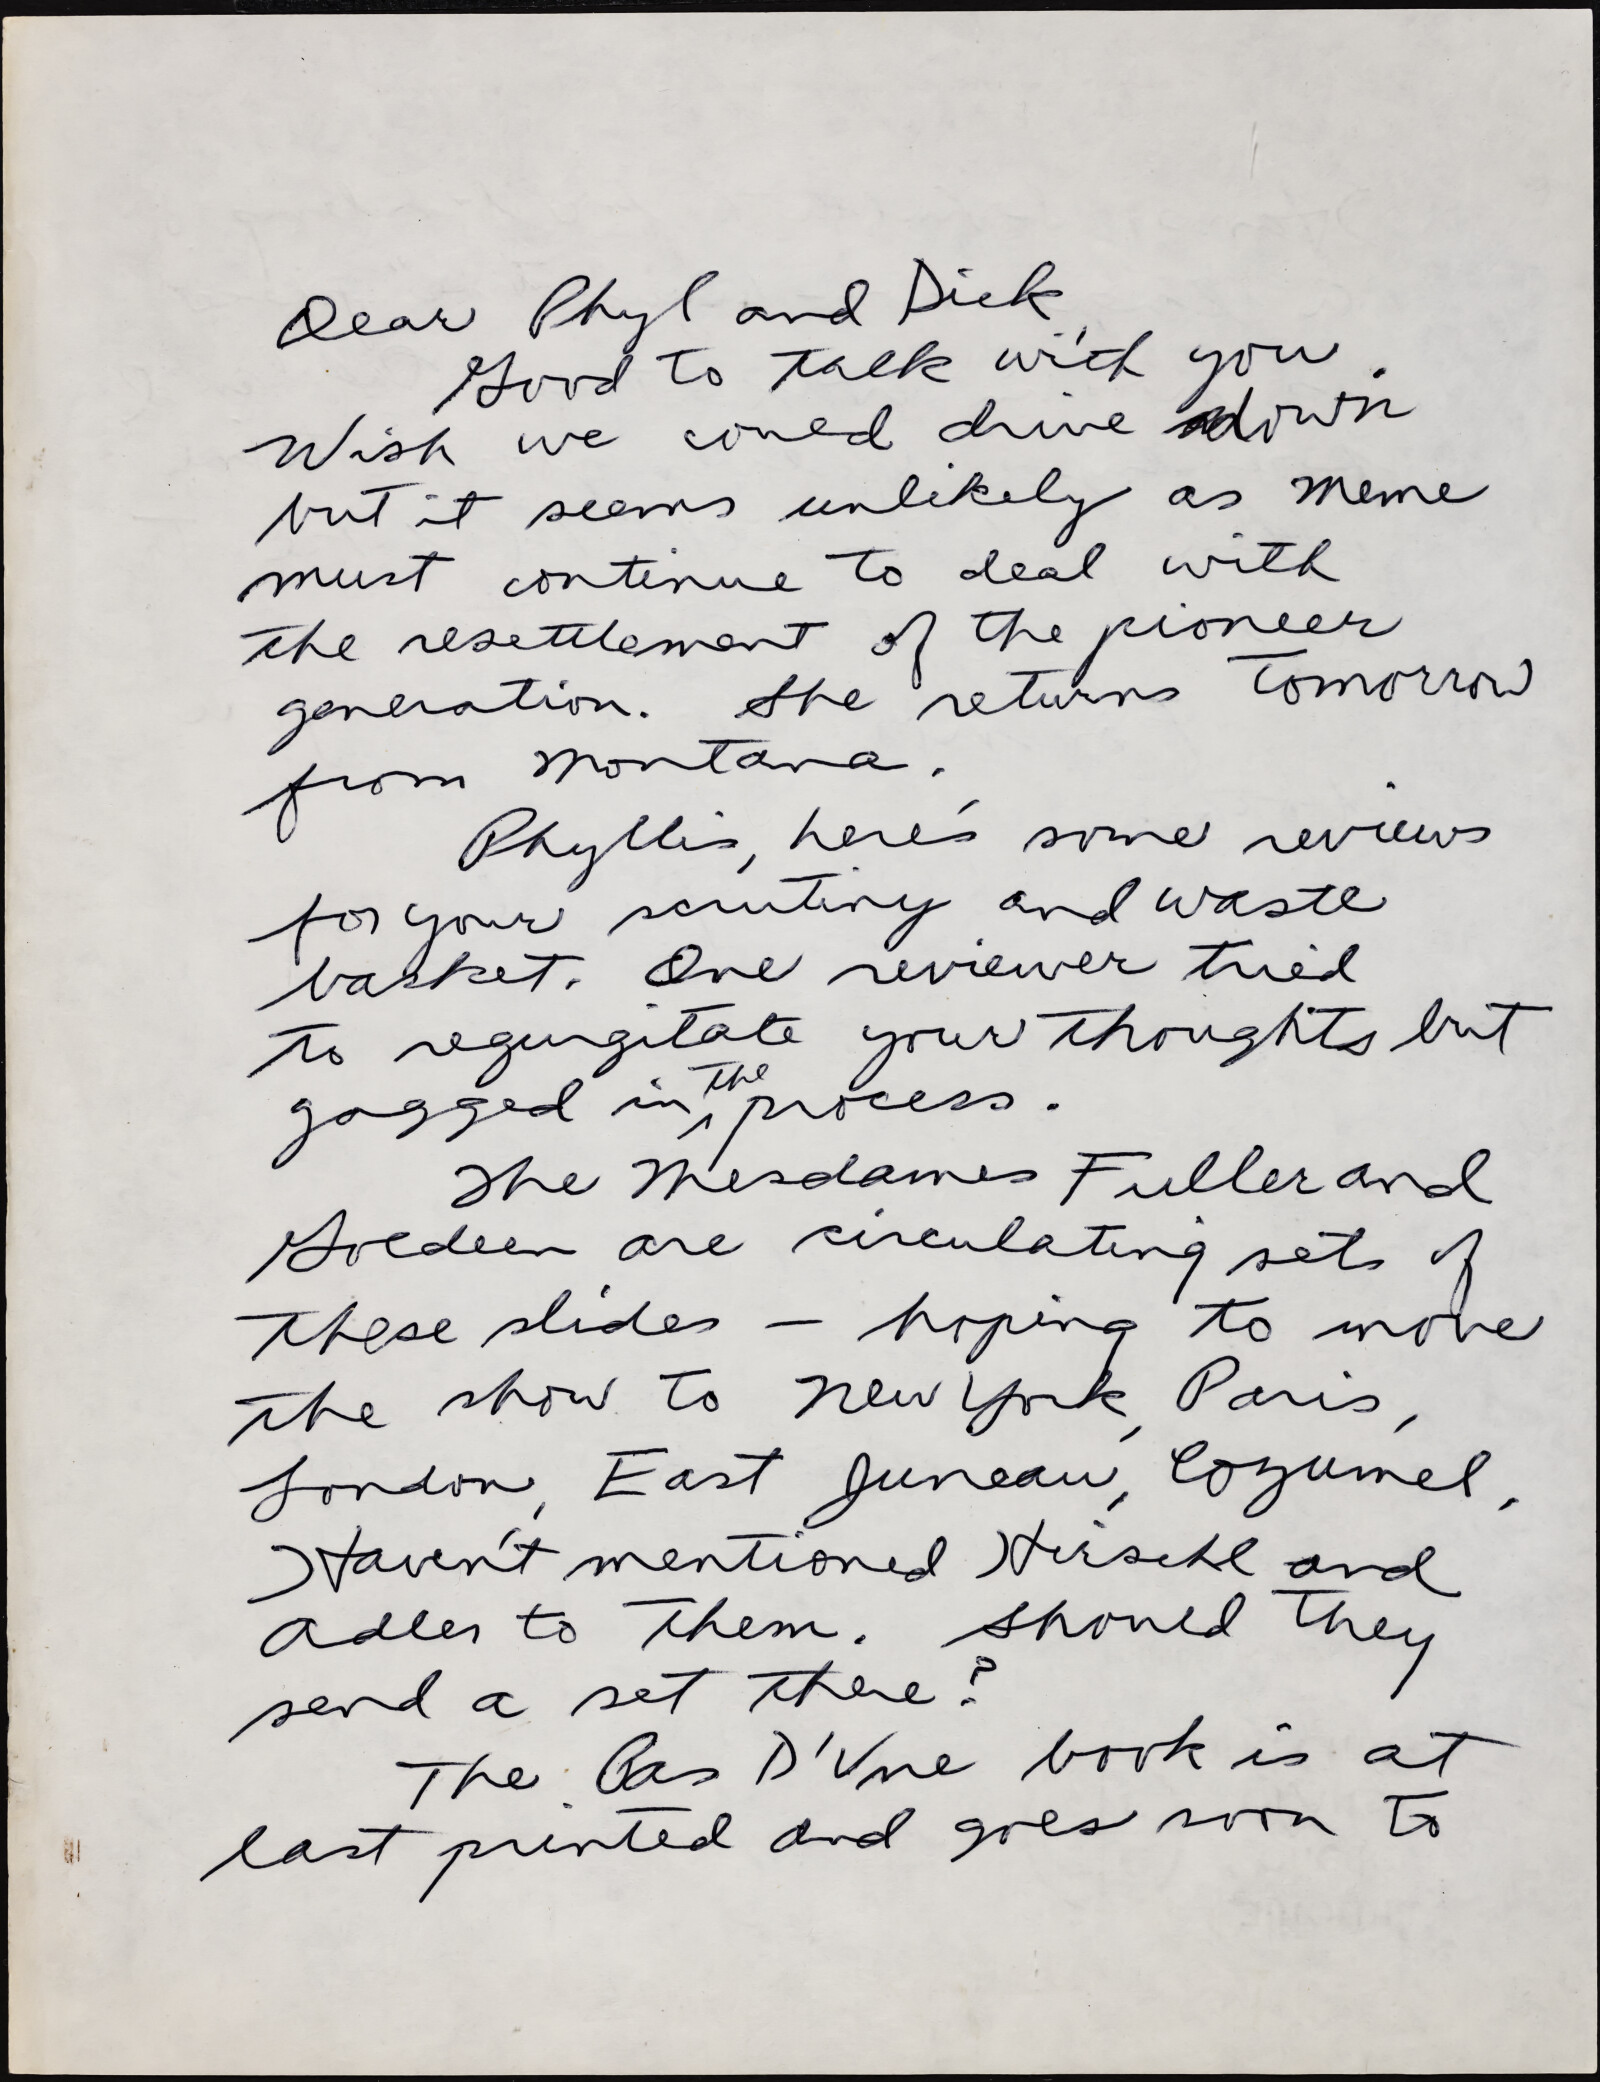 Dear Phyl and Dick,
Good to talk with you.
Wish we could drive down
but it seems unlikely as Meme
must continue to deal with
the resettlement of the pioneer
generation. She returns tomorrow
from Montana.
Phyllis, here's some reviews
for your scrutiny and waste
basket. One reviewer tried
to regurgitate your thoughts but
gagged in the process.
The Mesdames Fuller and
Goldeen are circulating sets of
these slides – hoping to move
the show to New York, Paris,
London, East Juneau, Cozumel.
Haven't mentioned Hirschl and
Adler to them. Should they
send a set there?
The Pas D'Vne book is at
last printed and goes soon to